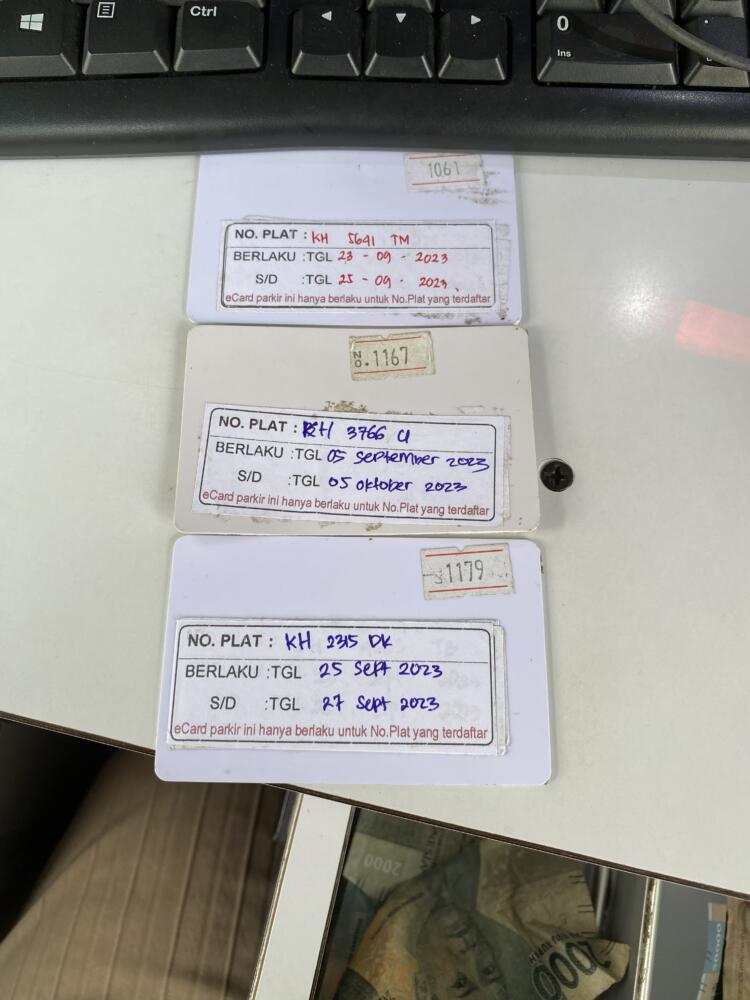 Ctrl
0
Ins
1061
NO. PLAT : KH 5641 TM
BERLAKU :TGL 23 - 09 - 2023
S/D :TGL 25 - 09 - 2023
eCard parkir ini hanya berlaku untuk No.Plat yang terdaftar
NO.1167
NO. PLAT : KH 3766 U
BERLAKU :TGL 05 September 2023
S/D :TGL 05 oktober 2023
eCard parkir ini hanya berlaku untuk No.Plat yang terdaftar
1179
NO. PLAT : KH 2315 DK
BERLAKU :TGL 25 Sept 2023
S/D :TGL 27 Sept 2023
eCard parkir ini hanya berlaku untuk No.Plat yang terdaftar
2000